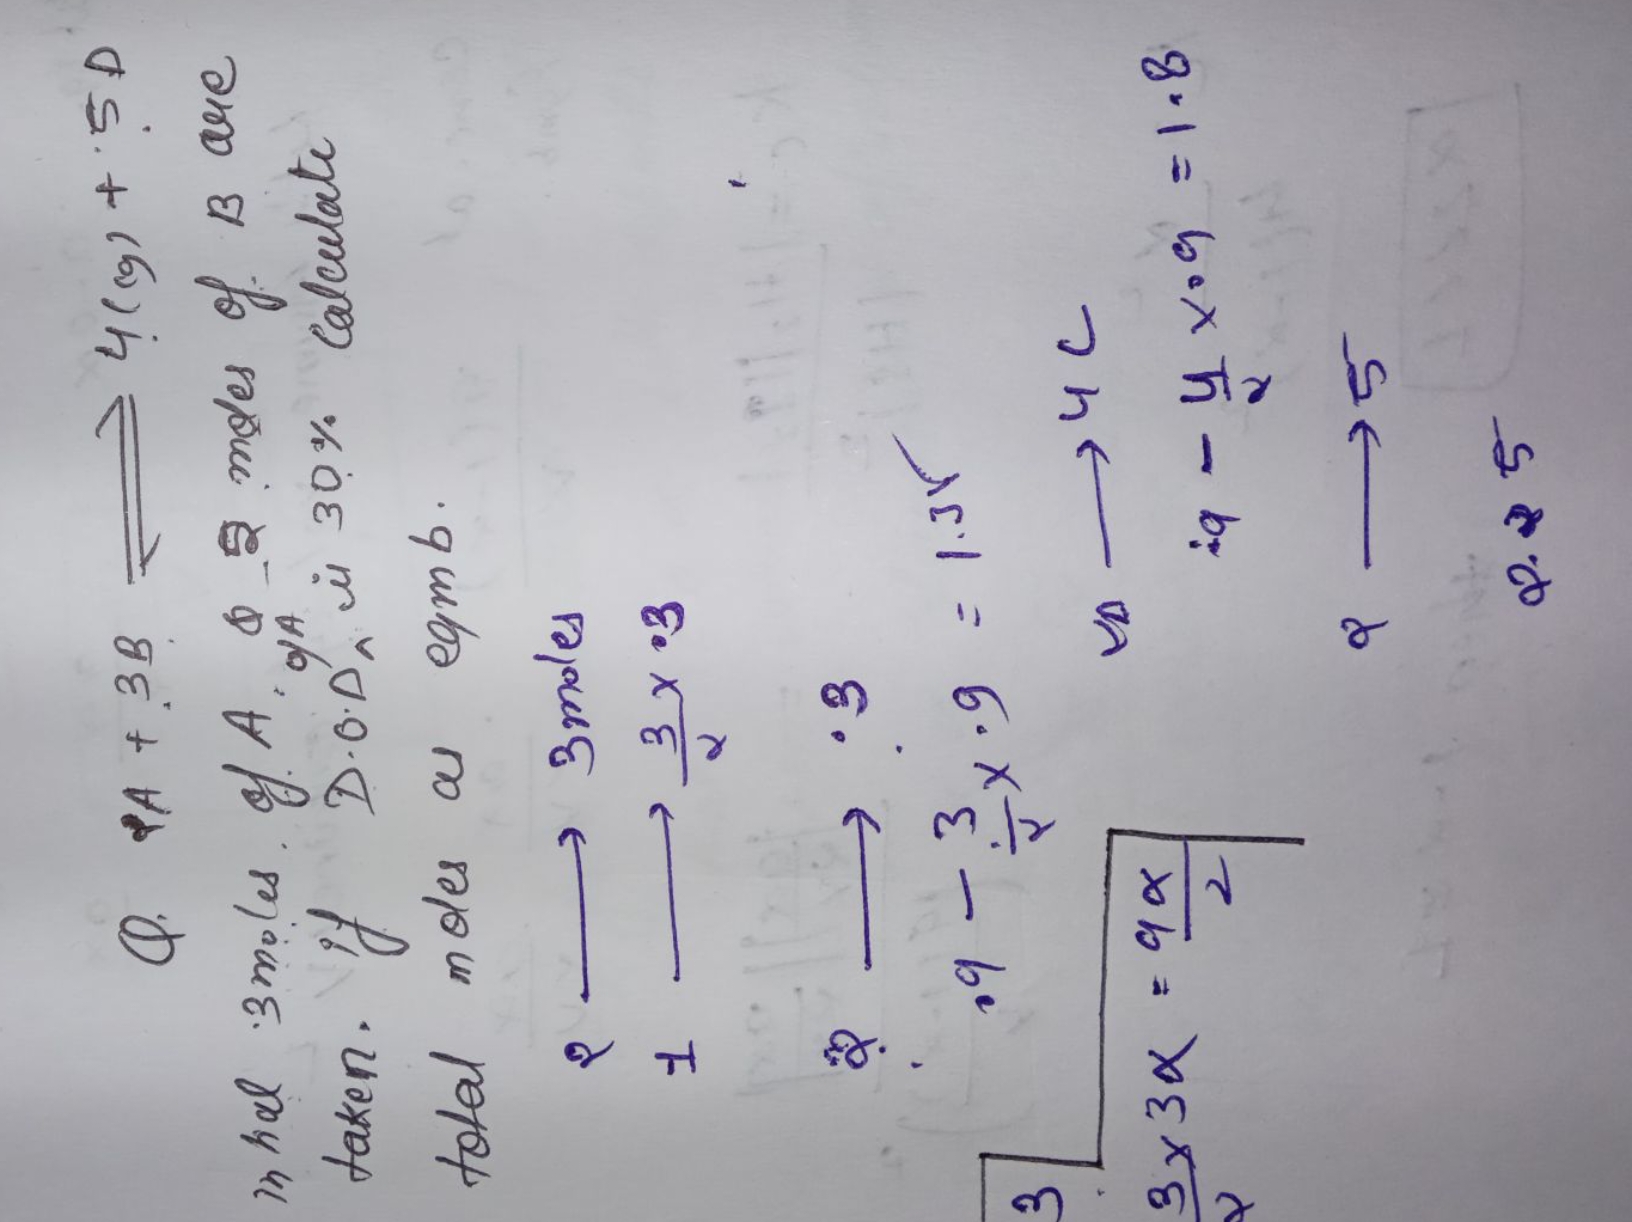 Q. 2A + 3B ⇌ 4(g) + 5D
Inhal 3moles of A & 2 moles of B are
taken. if D.O.D of A is 30% Calculate
total moles as eqmb.
2 → 3moles
1 → 3/2 x .3
2 → .3
.9 - 3/2 x .9 = 1.35
→ 4C
.9 - 4/2 x .9 = 1.8
2 → 5
5
3
3/2 x 3α = 9α/2